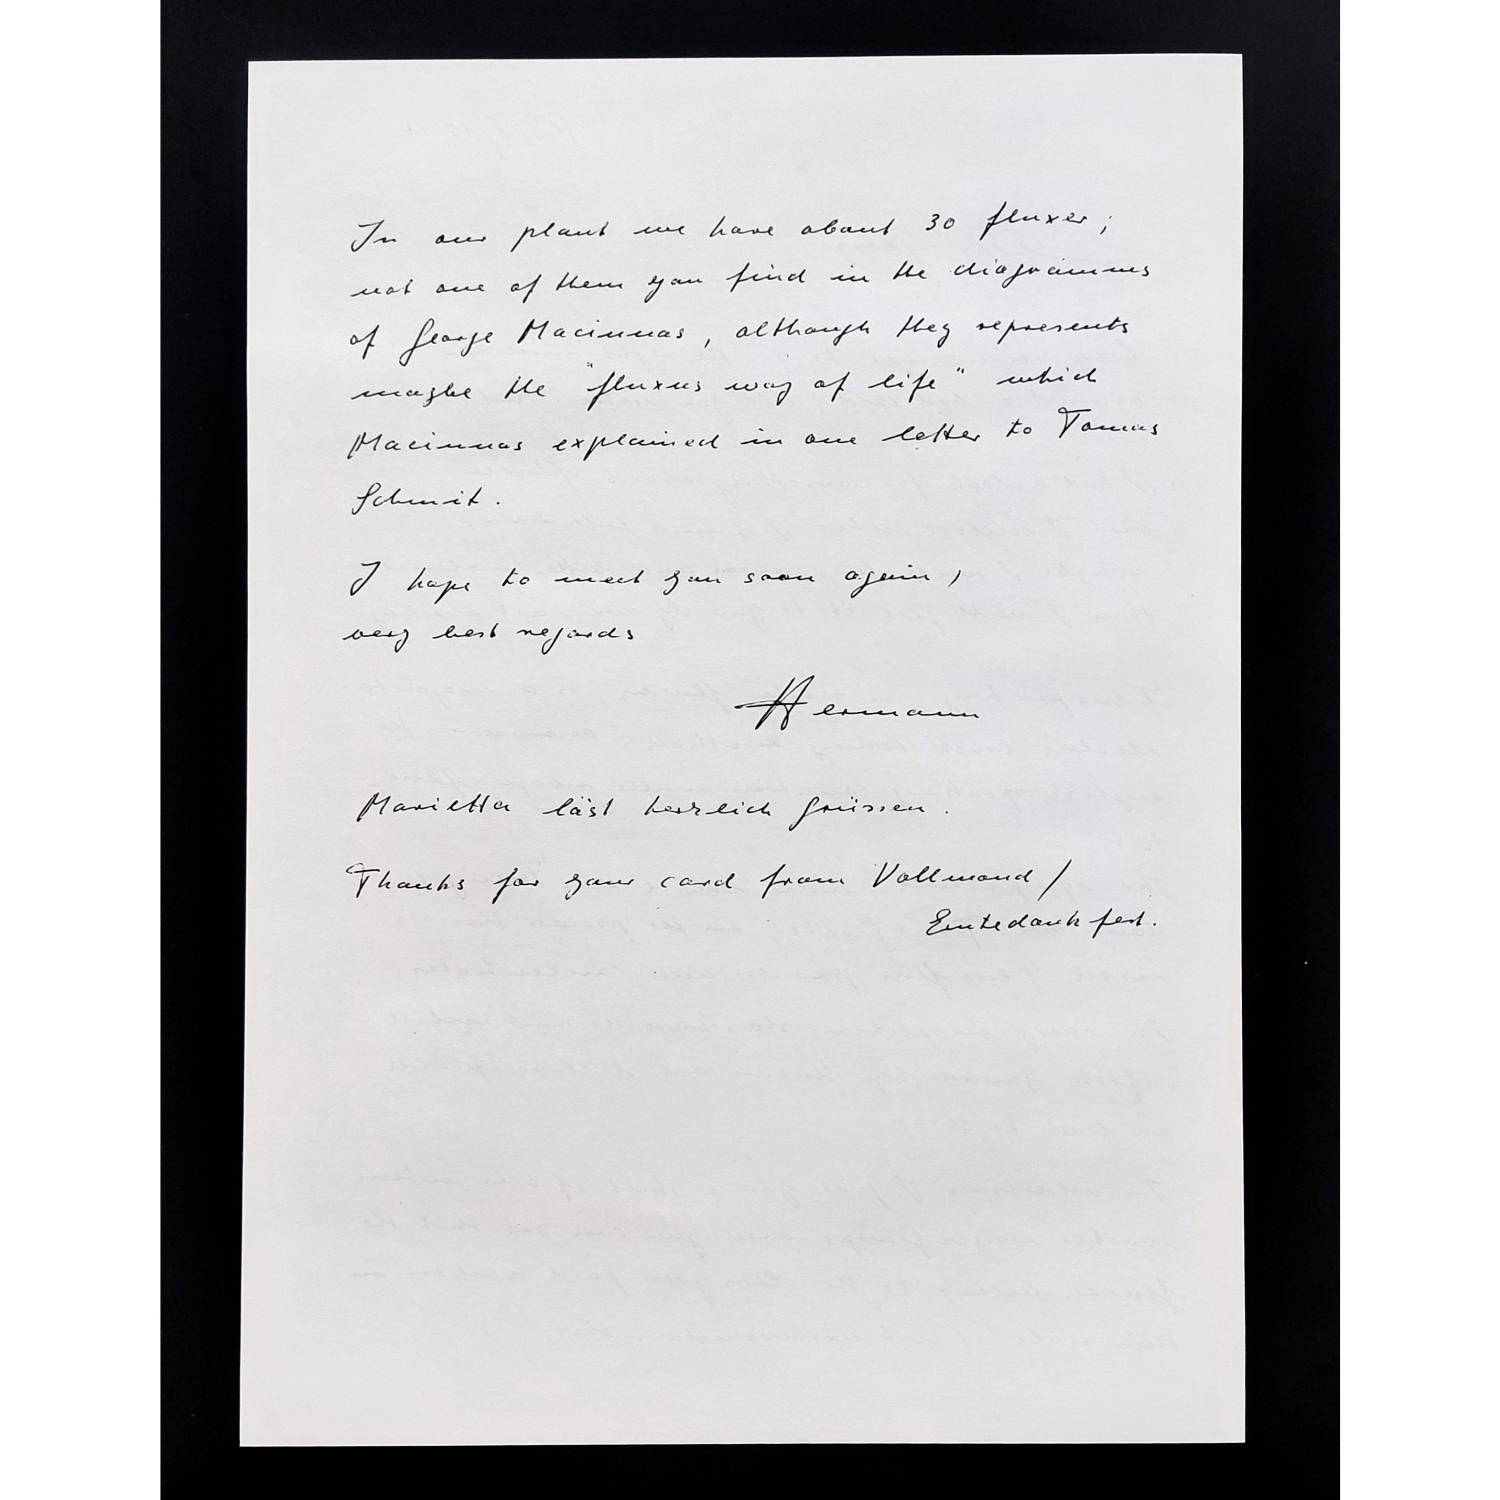 In our plant we have about 30 fluxer;
not one of them you find in the diagramms
of George Maciunas, although they represents
maybe the "fluxus way of life" which
Maciunas explained in one letter to Tomas
Schmit.
I hope to meet you soon again,
very best regards
Hermann
Marietta läst herzlich grüssen.
Thanks for your card from Vollmond/
Erntedankfest.